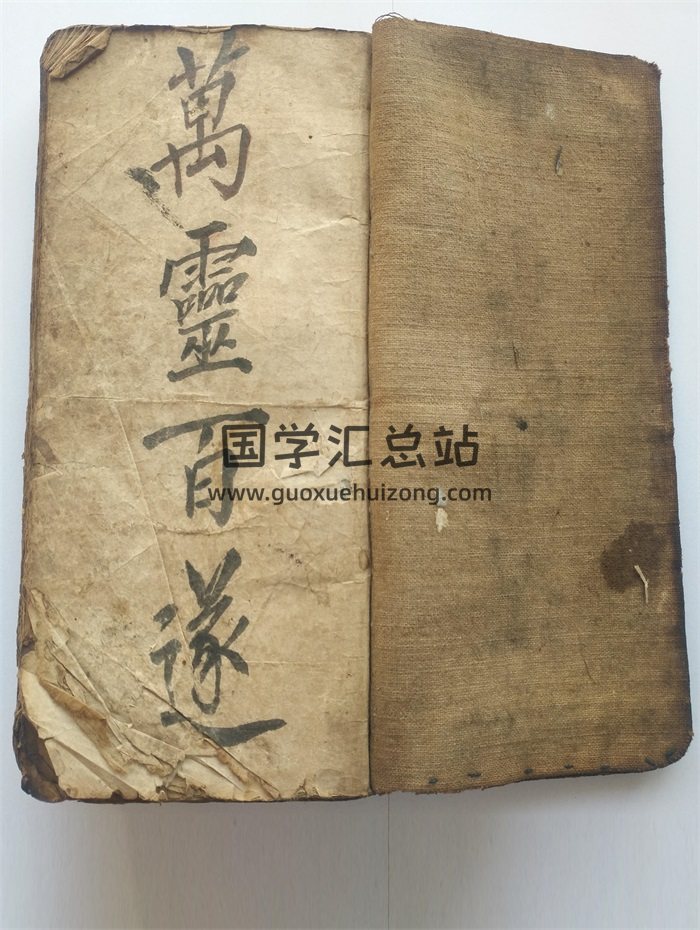 萬靈百遂
国学汇总站
www.guoxuehuizong.com